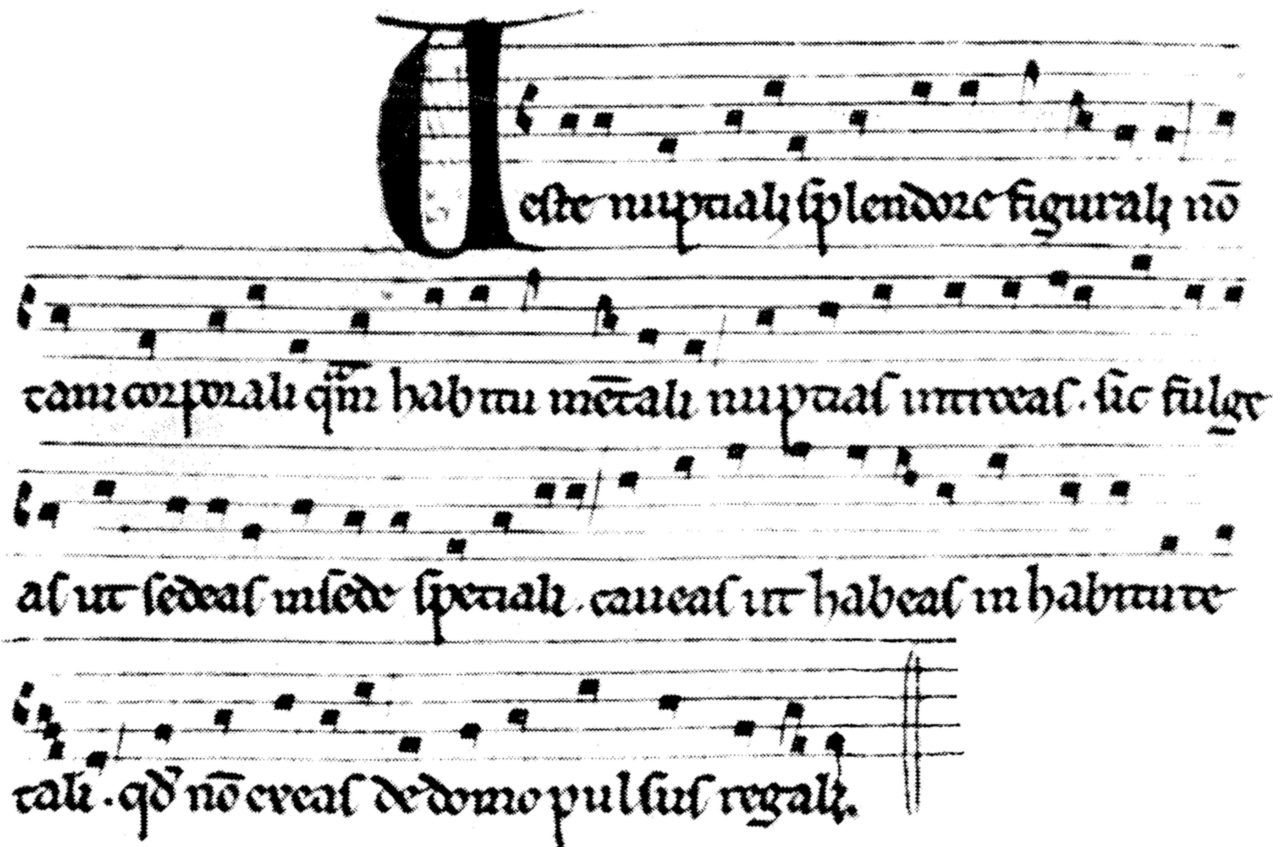 Ueste nuptiali splendore figurali nō
tam corporali q̄m habitu mētali nuptias introeas. sic fulge
as ut sedeas in sede speciali. caveas ut habeas in habitu te
tali. qd̄ nō exeas de domo pulsus regali.